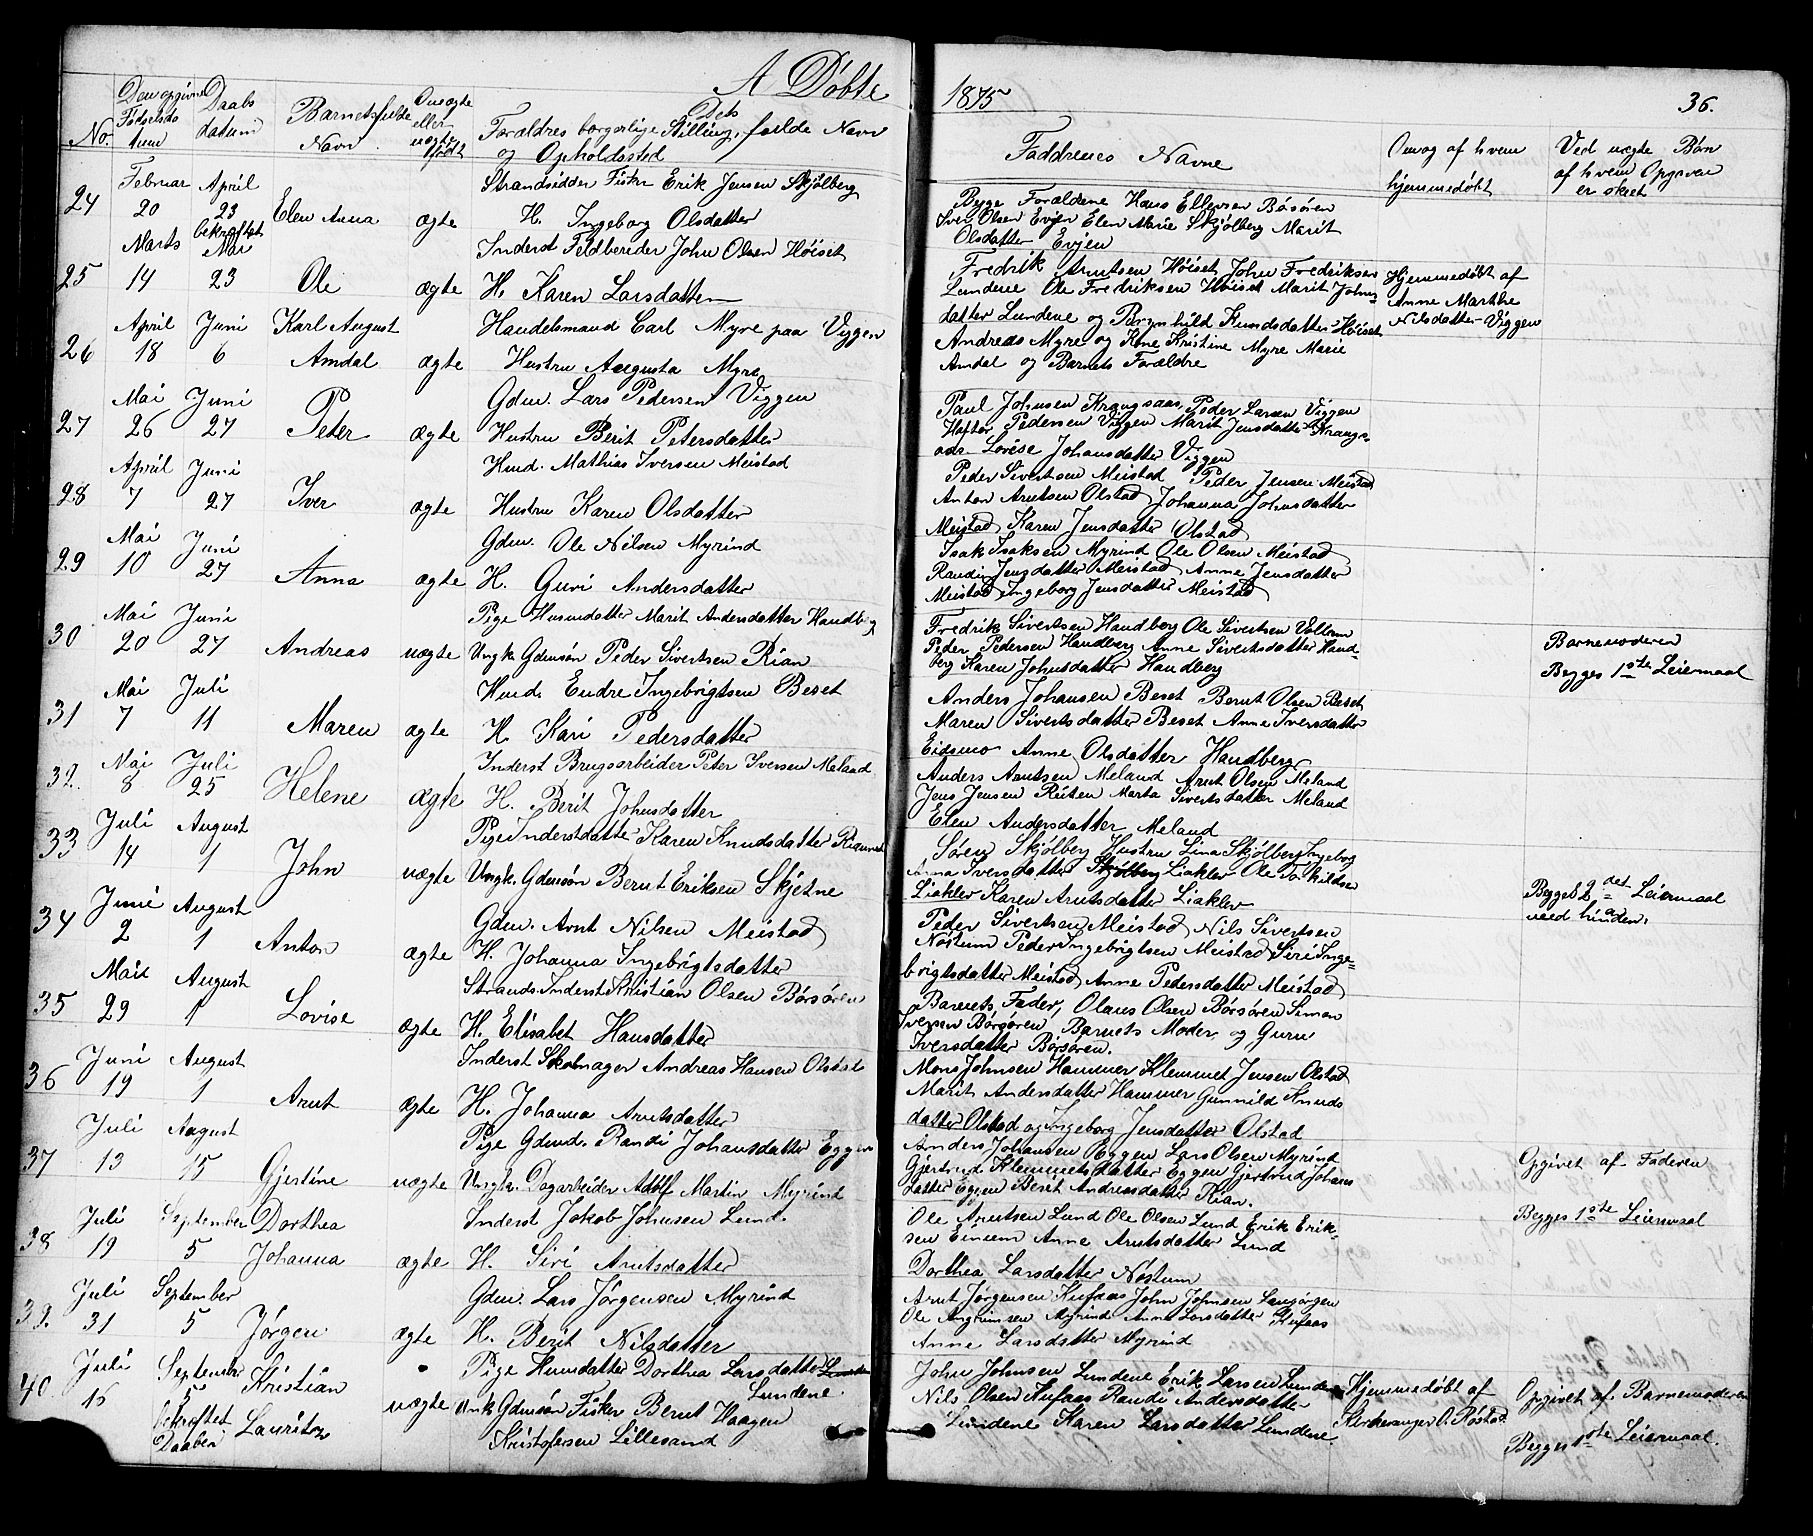 A Døbte
1875
36.
No.
Den opgivne Fødselsdatum
Daabs datum
Barnets fulde Navn
Om ægte eller uægte født
Dets Forældres borgerlige Stilling, fulde Navn
og Opholdssted
Faddrenes Navne
Om og af hvem
hjemmedøbt
Ved uægte Børn
af hvem Opgaven
er skeet
24 Februar 20 April 23 Elen Anna ægte
Strandsidder Fisker Erik Jensen Skjølberg
H. Ingeborg Olsdatter
Begge Forældrene Hans Ellevsen Børsøren
Iver Olsen Evjen Elen Marie Skjølberg Marit
Olsdatter Evjen
25 Marts 14 bekræftet Mai 23 Ole ægte
Inderst Feldbereder John Olsen Høiset
H. Karen Larsdatter
Fredrik Arntsen Høiset John Fredriksen
Lundene Ole Fredriksen Høiset Marit Johns
datter Lundene og Brynhild Knudsdatter Høiset
Hjemmedøbt af
Anne Marthe
Nilsdatter Viggen
26 April 18 Juni 6 Karl August Amdal ægte
Handelsmand Carl Myre paa Viggen
Hustru Augusta Myre
Andreas Myre og Kone Kristine Myre Marie
Amdal og Barnets Forældre
27 Mai 26 Juni 27 Peter ægte
Gdm. Lars Pedersen Viggen
Hustru Berit Petersdatter
Paul Johnsen Krangsaas, Peder Larsen Viggen
Haftor Pedersen Viggen Marit Jensdatter Krangs-
aas Lovise Johansdatter Viggen
28 April 7 Juni 27 Iver ægte
Hmd. Mathias Iversen Meistad
Hustru Karen Olsdatter
Peder Sivertsen Meistad Peder Jensen Meistad
Anton Arntsen Olstad Johanna Johnsdatter
Meistad Karen Jensdatter Olstad
29 Mai 10 Juni 27 Anna ægte
Gdm. Ole Nilsen Myrind
H. Guri Andersdatter
Isak Isaksen Myrind Ole Olsen Meistad
Randi Jensdatter Meistad Anne Jensdatter
Meistad Ingeborg Jensdatter Meistad
30 Mai 20 Juni 27 Andreas uægte
Pige Husmdatter Marit Andersdatter Handberg
Ungk. Gdmsøn Peder Sivertsen Rian
Fredrik Sivertsen Handberg Ole Sivertsen Vollum
Peder Pedersen Handberg Anne Sivertsdatter Hand-
berg Karen Johnsdatter Handberg
Barnemoderen
Begges 1ste Leiermaal
31 Mai 7 Juli 11 Maren ægte
Hmd. Endre Ingebrigtsen Beset
H. Kari Pedersdatter
Anders Johansen Beset Bernt Olsen Beset
Maren Sivertsdatter Beset Anne Iversdatter
Eidsmo Anne Olsdatter Handberg
32. Mai 8 Juli 25 Helene ægte
Inderst Brugsarbeider Peter Iversen Meland
H. Berit Johnsdatter
Anders Arntsen Meland Arnt Olsen Meland
Jens Jensen Ruten Marta Sivertsdatter Meland
Elen Andersdatter Meland
33 Juli 14 August 1 John uægte
Pige Inderstdatter Karen Knudsdatter Rianmet
Ungk. Gdmsøn Bernt Eriksen Skjetne
Søren Skjølberg Hustru Lina Skjølberg Ingeborg
Anna Iversdatter Skjølberg Liaklev Ole Torkildsen
Liaklev Karen Arntsdatter Liaklev
Begges 2det Leiermaal
med hinanden.
34 Juni 2 August 1 Anton ægte
Gdm. Arnt Nilsen Meistad
H. Johanna Ingebrigtsdatter
Peder Sivertsen Meistad Nils Sivertsen
Nøstum Peder Ingebrigtsen Meistad Siri Inge-
brigtsdatter Meistad Anne Pedersdatter Meistad
35 Mai 29 August 1 Lovise ægte
Strands. Inderst Kristian Olsen Børsøren
H. Elisabet Hansdatter
Barnets Fader, Olaus Olsen Børsøren Simon
Iversen Børsøren Barnets Moder og Guru
Iversdatter Børsøren.
36 Juni 19 August 1 Arnt ægte
Inderst Skomager Andreas Hansen Olstad
H. Johanna Arntsdatter
Mons Johnsen Hammer Klemmet Jensen Olstad
Marit Andersdatter Hammer Gunnild Knuds
datter Olstad og Ingeborg Jensdatter Olstad
37 Juli 13 August 15 Gjertine uægte
Pige Gdmd. Randi Johansdatter Eggen
Ungk. Dagarbeider Adolf Martin Myrind
Anders Johansen Eggen Lars Olsen Myrind
Gjertrud Klemmetsdatter Eggen Gjertrud Johans
datter Eggen Berit Andreasdatter Rian.
Opgivet af Faderen
Begges 1ste Leiermaal
38 Juli 19 September 5 Dorthea Johanna ægte
Inderst Jakob Johnsen Lund.
H. Siri Arntsdatter
Ole Arntsen Lund Ole Olsen Lund Erik Erik-
sen Einem Anne Arntsdatter Lund
Dorthea Larsdatter Nøstum
39. Juli 31 September 5 Jørgen ægte
Gdm. Lars Jørgensen Myrind
H. Berit Nilsdatter
Arnt Jørgensen Kufaas John Johnsen Langørgen
Ole Angrimsen Myrind Anne Larsdatter Kufaas
Anne Larsdatter Myrind
40. Juli 16 September 5 bekræftet Daaben Kristian Lauritz uægte
Pige Husmdatter Dorthea Larsdatter
Lundene
Unk Gdmsøn Fisker Bernt Haagen
Kristofersen Lillesand
John Johnsen Lundene Erik Larsen Lundene
Nils Olsen Kufaas Randi Andersdatter
Lundene Karen Larsdatter Lundene
Hjemmedøbt af
Kirkesanger O. Røstad
Opgivet af Barnemoderen
Begges 1ste Leiermaal.